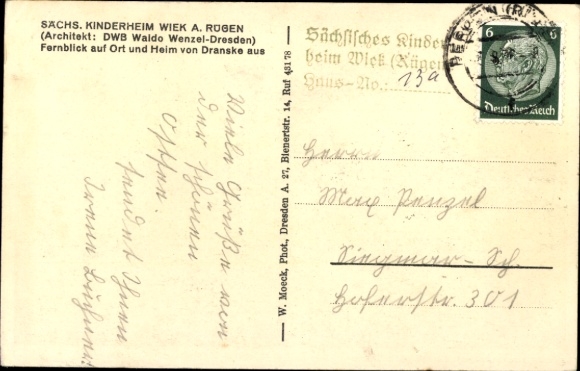 SÄCHS. KINDERHEIM WIEK A. RÜGEN
(Architekt: DWB Waldo Wenzel-Dresden)
Fernblick auf Ort und Heim von Dranske aus
Viele Grüße von
der schönen
Ostsee
sendet Ihnen
Irene
W. Moeck, Phot., Dresden A. 27, Bienertstr. 14, Ruf 43178
Sächsisches Kinder
heim Wiek (Rügen)
Haus-No.: 13a
6 6
Deutsches Reich
Herrn
Max Penzel
Siegmar-Sch.
Hoferstr. 301